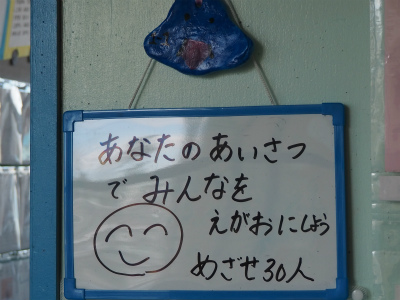 あなたのあいさつ
で みんなを
えがおにしよう
めざせ30人